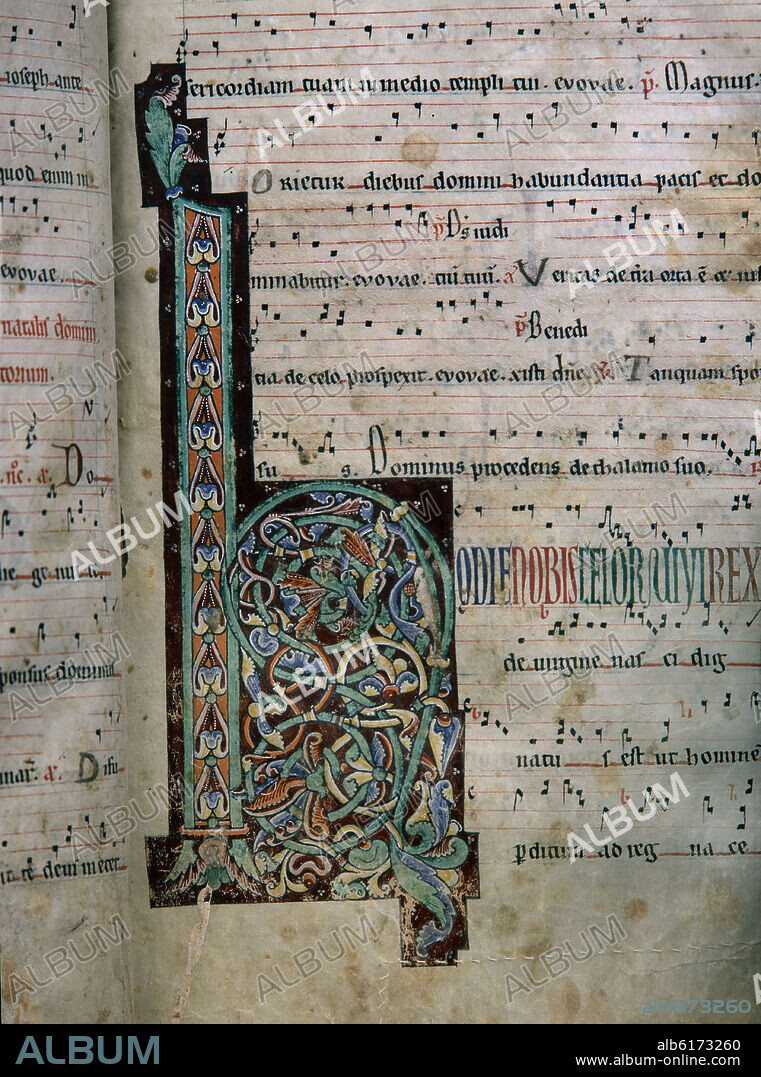 ioseph ante
quod enim in
evovae.
natalis domini.
torium.
Do
ponsus domina
Difu
it te dem meter
sericordiam tuam in medio templi tui. evovae. p̄. Magnus.
Orietur diebus domini habundantia pacis et do
p̄. Ds iudi
minabitur. evovae. ciū tuū. a Veritas de t̄ra orta ē
p̄ Benedi
cia de celo prospexit. evovae. xisti dn̄e Tanquam spo
su s. Dominus procedens de thalamo suo.
hODIE NOBIS CELORUM REX
de uirgine nas ci dig
natu s est ut homine
perditum ad reg na ce
ALBUM
alb6173260
ALBUM
alb6173260
www.album-online.com